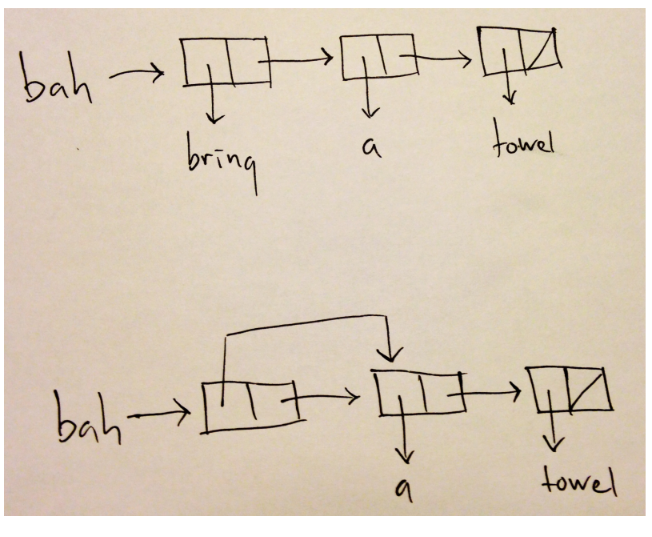 bah
bring a towel
bah
a towel